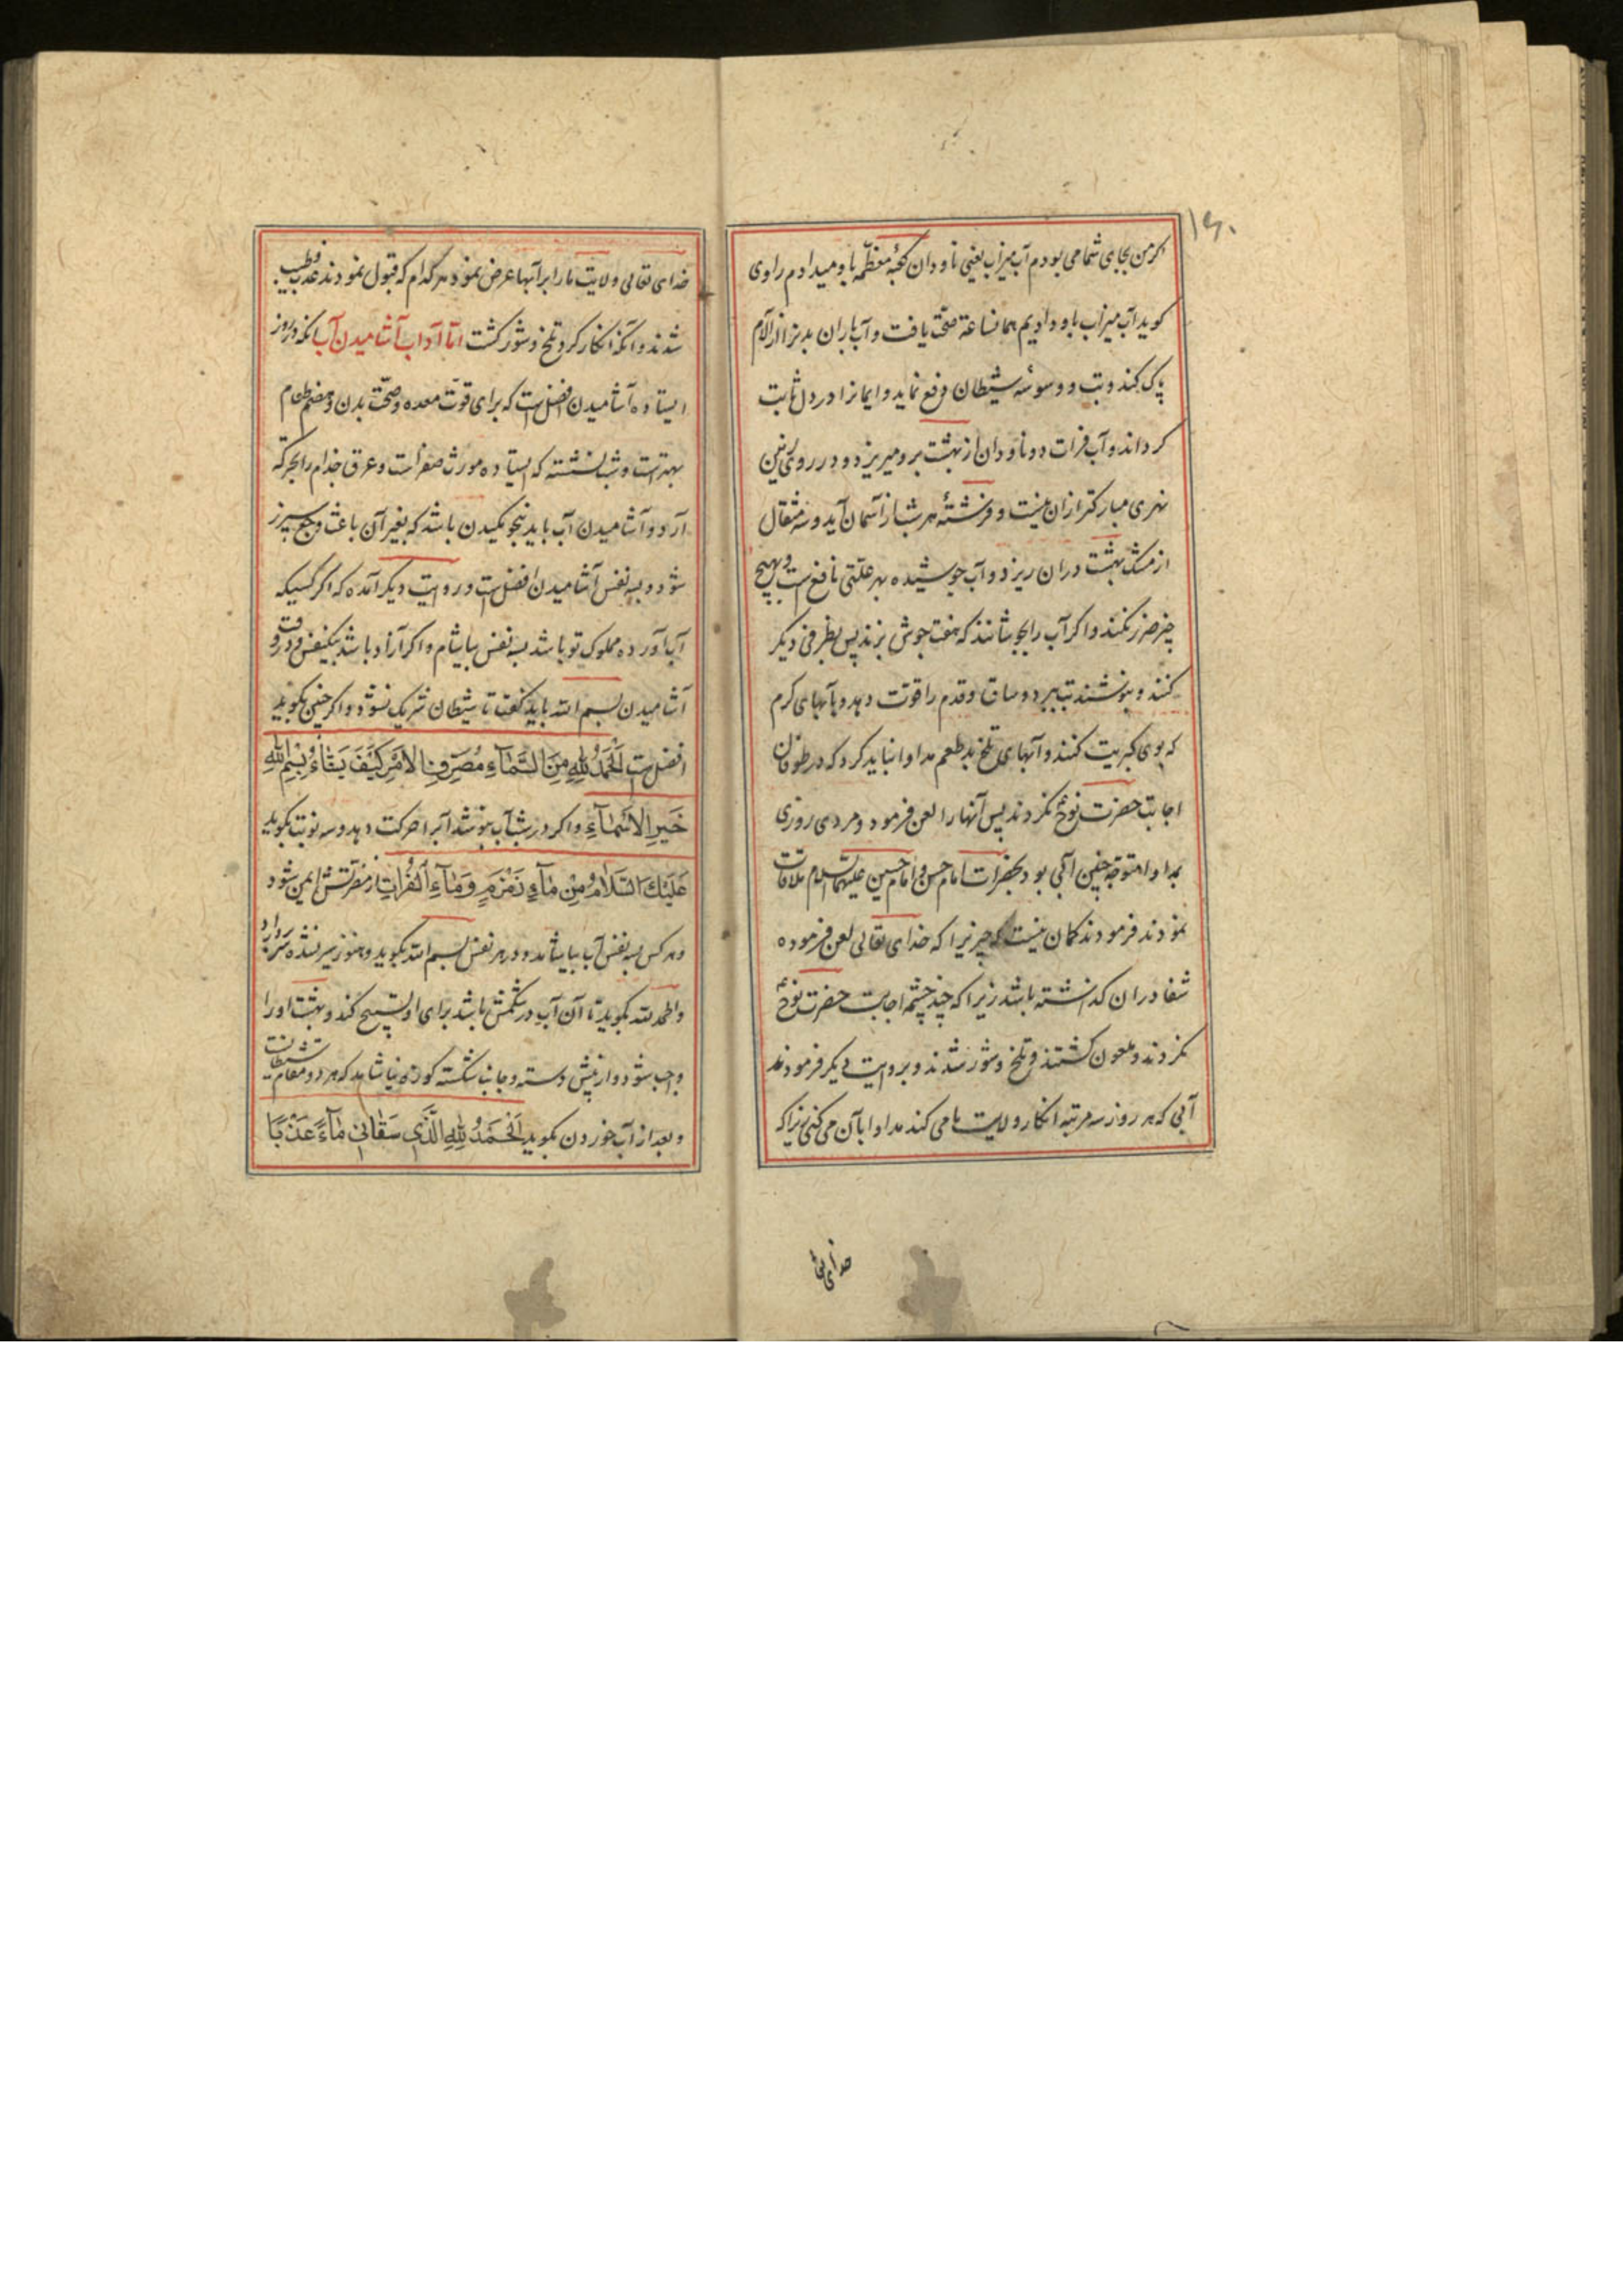 ۱۶۰
اکر من بجای شما می بودم آب میزاب یعنی ناودان کعبهٔ معظمه باو میدادم راوی
کوید آب میزاب باو دادیم همانساعة صحّت یافت و آب باران بدنرا از آلام
پاک کند و تب و وسوسهٔ شیطان دفع نماید و ایمانرا در دل ثابت
کرداند و آب فرات دو ناودان از بهشت برو میریزد و در روی زمین
نهری مبارکتر ازان نیست و فرشتهٔ هر شب از آسمان آید و سه مثقال
از مشک بهشت دران ریزد و آب جوشیده بهر علتی نافع است و بهیچ
چیز ضرر نکند و اکر آب را بجوشانند که هفت جوش بزند پس بظرفی دیکر
کنند و بنوشند تب ببرد و ساق و قدم را قوّت دهد و بآبهای کرم
که بوی کبریت کنند و آبهای تلخ بد طعم مداوا نباید کرد که در طوفان
اجابت حضرت نوح نکردند پس آنها را لعن فرمود و مردی روزی
بمداوا متوجّه چنین آبی بود بحضرات امام حسن و امام حسین علیهما السلام ملاقات
نمودند فرمودند کمان نیست که چیزیرا که خدای تعالی لعن فرموده
شفا دران کذاشته باشد زیرا که چند چشمه اجابت حضرت نوح
نکردند و ملعون کشتند و تلخ و شور شدند و بروایت دیکر فرمودند
آبی که هر روز سه مرتبه انکار ولایت ما می کند مداوا بآن می کنی زیرا که
خدای تعالی
خدای تعالی ولایت ما را بر آبها عرض نمود هر کدام که قبول نمودند عذب و طیب
شدند و آنکه انکار کرد تلخ و شور کشت امّا آداب آشامیدن آب آنکه در روز
ایستاده آشامیدن افضل است که برای قوّت معده و صحّت بدن و هضم طعام
بهتر است و شب نشسته که ایستاده مورث صفراست و عرق جذام را بحرکة
آرد و آشامیدن آب باید بنحو مکیدن باشد که بغیر آن باعث وجع سپرز
شود و بسه نفس آشامیدن افضل است و در روایت دیکر آمده که اکر کسیکه
آب آورده مملوک تو باشد بسه نفس بیاشام و اکر آزاد باشد بیکنفس و در وقت
آشامیدن بسم الله باید کفت تا شیطان شریک نشود و اکر چنین بکوید
افضل است اَلْحَمْدُ لِلّٰهِ مِنَ السَّمَآءِ مُصَرِّفِ الْاَمْرِ كَيْفَ يَشَآءُ بِسْمِ اللّٰهِ
خَيْرِ الْاَسْمَآءِ و اکر در شب آب بنوشد آبرا حرکت دهد و سه نوبت بکوید
عَلَيْكَ السَّلَامُ مِنْ مَآءِ زَمْزَمٍ وَ مَآءِ الْفُرَاتِ از مضرّتش ایمن شود
و هر کس بسه نفس آب بیاشامد و در هر نفس بسم الله بکوید و هنوز سیر نشده سر بردارد
و الحمد لله بکوید تا آن آب در شکمش باشد برای او تسبیح کند و بهشت او را
واجب شود و از پیش دسته و جانب شکسته کوزه نیاشامد که هر دو مقام شیطانست
و بعد از آب خوردن بکوید اَلْحَمْدُ لِلّٰهِ الَّذِي سَقَانِي مَآءً عَذْبًا